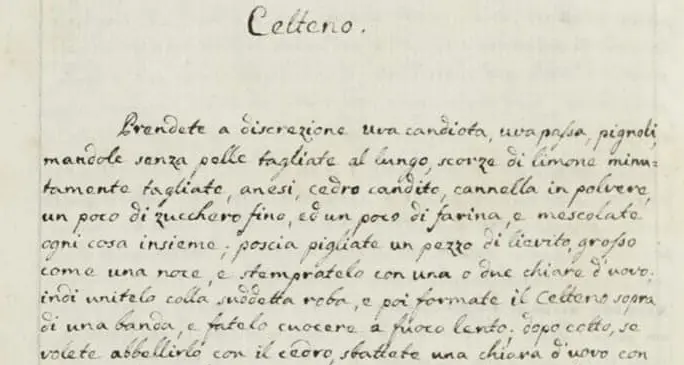 Celteno.
Prendete a discrezione uva candiota, uva passa, pignoli,
mandole senza pelle tagliate al lungo, scorze di limone minu=
tamente tagliate, anesi, cedro candito, cannella in polvere,
un poco di zucchero fino, ed un poco di farina, e mescolate
ogni cosa insieme; poscia pigliate un pezzo di lievito, grosso
come una noce, e stempratelo con una o due chiare d'uovo;
indi unitelo colla suddetta roba, e poi formate il Celteno sopra
di una banda, e fatelo cuocere a fuoco lento; dopo cotto, se
volete abbellirlo con il cedro, sbattete una chiara d'uovo con